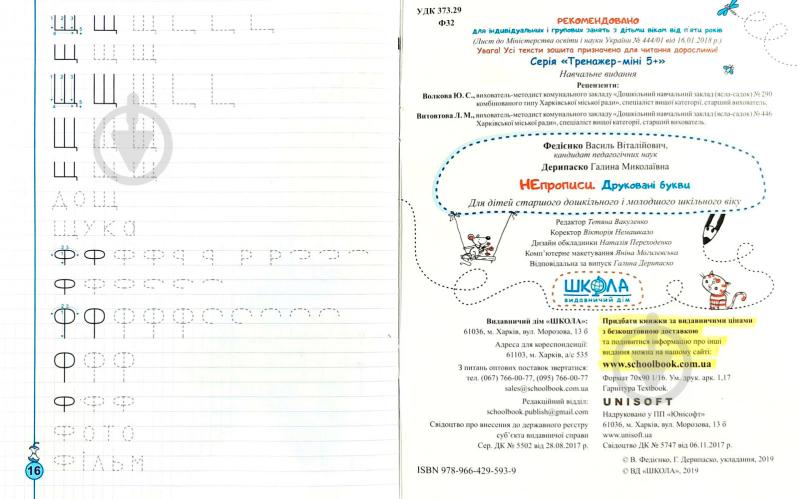 Щ Щ Щ
Щ Щ Щ
Щ Щ Щ
Щ Щ Щ
Щ Щ Щ
ДОЩ
ЩУКА
Ф Ф Ф Ф
Ф Ф Ф Ф Ф
Ф Ф Ф Ф
Ф Ф Ф
Ф Ф Ф
ФОТО
ФІЛЬМ
16
УДК 373.29
Ф32
РЕКОМЕНДОВАНО
для індивідуальних і групових занять з дітьми віком від п'яти років
(Лист до Міністерства освіти і науки України № 444/01 від 16.01.2018 р.)
Увага! Усі тексти зошита призначено для читання дорослими!
Серія «Тренажер-міні 5+»
Навчальне видання
Рецензенти:
Волкова Ю. С., вихователь-методист комунального закладу «Дошкільний навчальний заклад (ясла-садок) № 290
комбінованого типу Харківської міської ради», спеціаліст вищої категорії, старший вихователь.
Витовтова Л. М., вихователь-методист комунального закладу «Дошкільний навчальний заклад (ясла-садок) № 446
Харківської міської ради», спеціаліст вищої категорії, старший вихователь.
Федієнко Василь Віталійович,
кандидат педагогічних наук
Дерипаско Галина Миколаївна
НЕпрописи. Друковані букви
Для дітей старшого дошкільного і молодшого шкільного віку
Редактор Тетяна Вакуленко
Коректор Вікторія Немашкало
Дизайн обкладинки Наталія Переходенко
Комп'ютерне макетування Яніна Могилевська
Відповідальна за випуск Галина Дерипаско
ШКОЛА
ВИДАВНИЧИЙ ДІМ
Видавничий дім «ШКОЛА»:
61036, м. Харків, вул. Морозова, 13 б
Адреса для кореспонденції:
61103, м. Харків, а/с 535
З питань оптових поставок звертатися:
тел. (067) 766-00-77, (095) 766-00-77
sales@schoolbook.com.ua
Редакційний відділ:
schoolbook.publish@gmail.com
Свідоцтво про внесення до державного реєстру
суб'єкта видавничої справи
Сер. ДК № 5502 від 28.08.2017 р.
ISBN 978-966-429-593-9
Придбати книжки за видавничими цінами
з безкоштовною доставкою
та подивитися інформацію про інші
видання можна на нашому сайті:
www.schoolbook.com.ua
Формат 70х90 1/16. Ум. друк. арк. 1,17
Гарнітура Textbook.
UNISOFT
Надруковано у ПП «Юнісофт»
61036, м. Харків, вул. Морозова, 13 б
www.unisoft.ua
Свідоцтво ДК № 5747 від 06.11.2017 р.
© В. Федієнко, Г. Дерипаско, укладання, 2019
© ВД «ШКОЛА», 2019